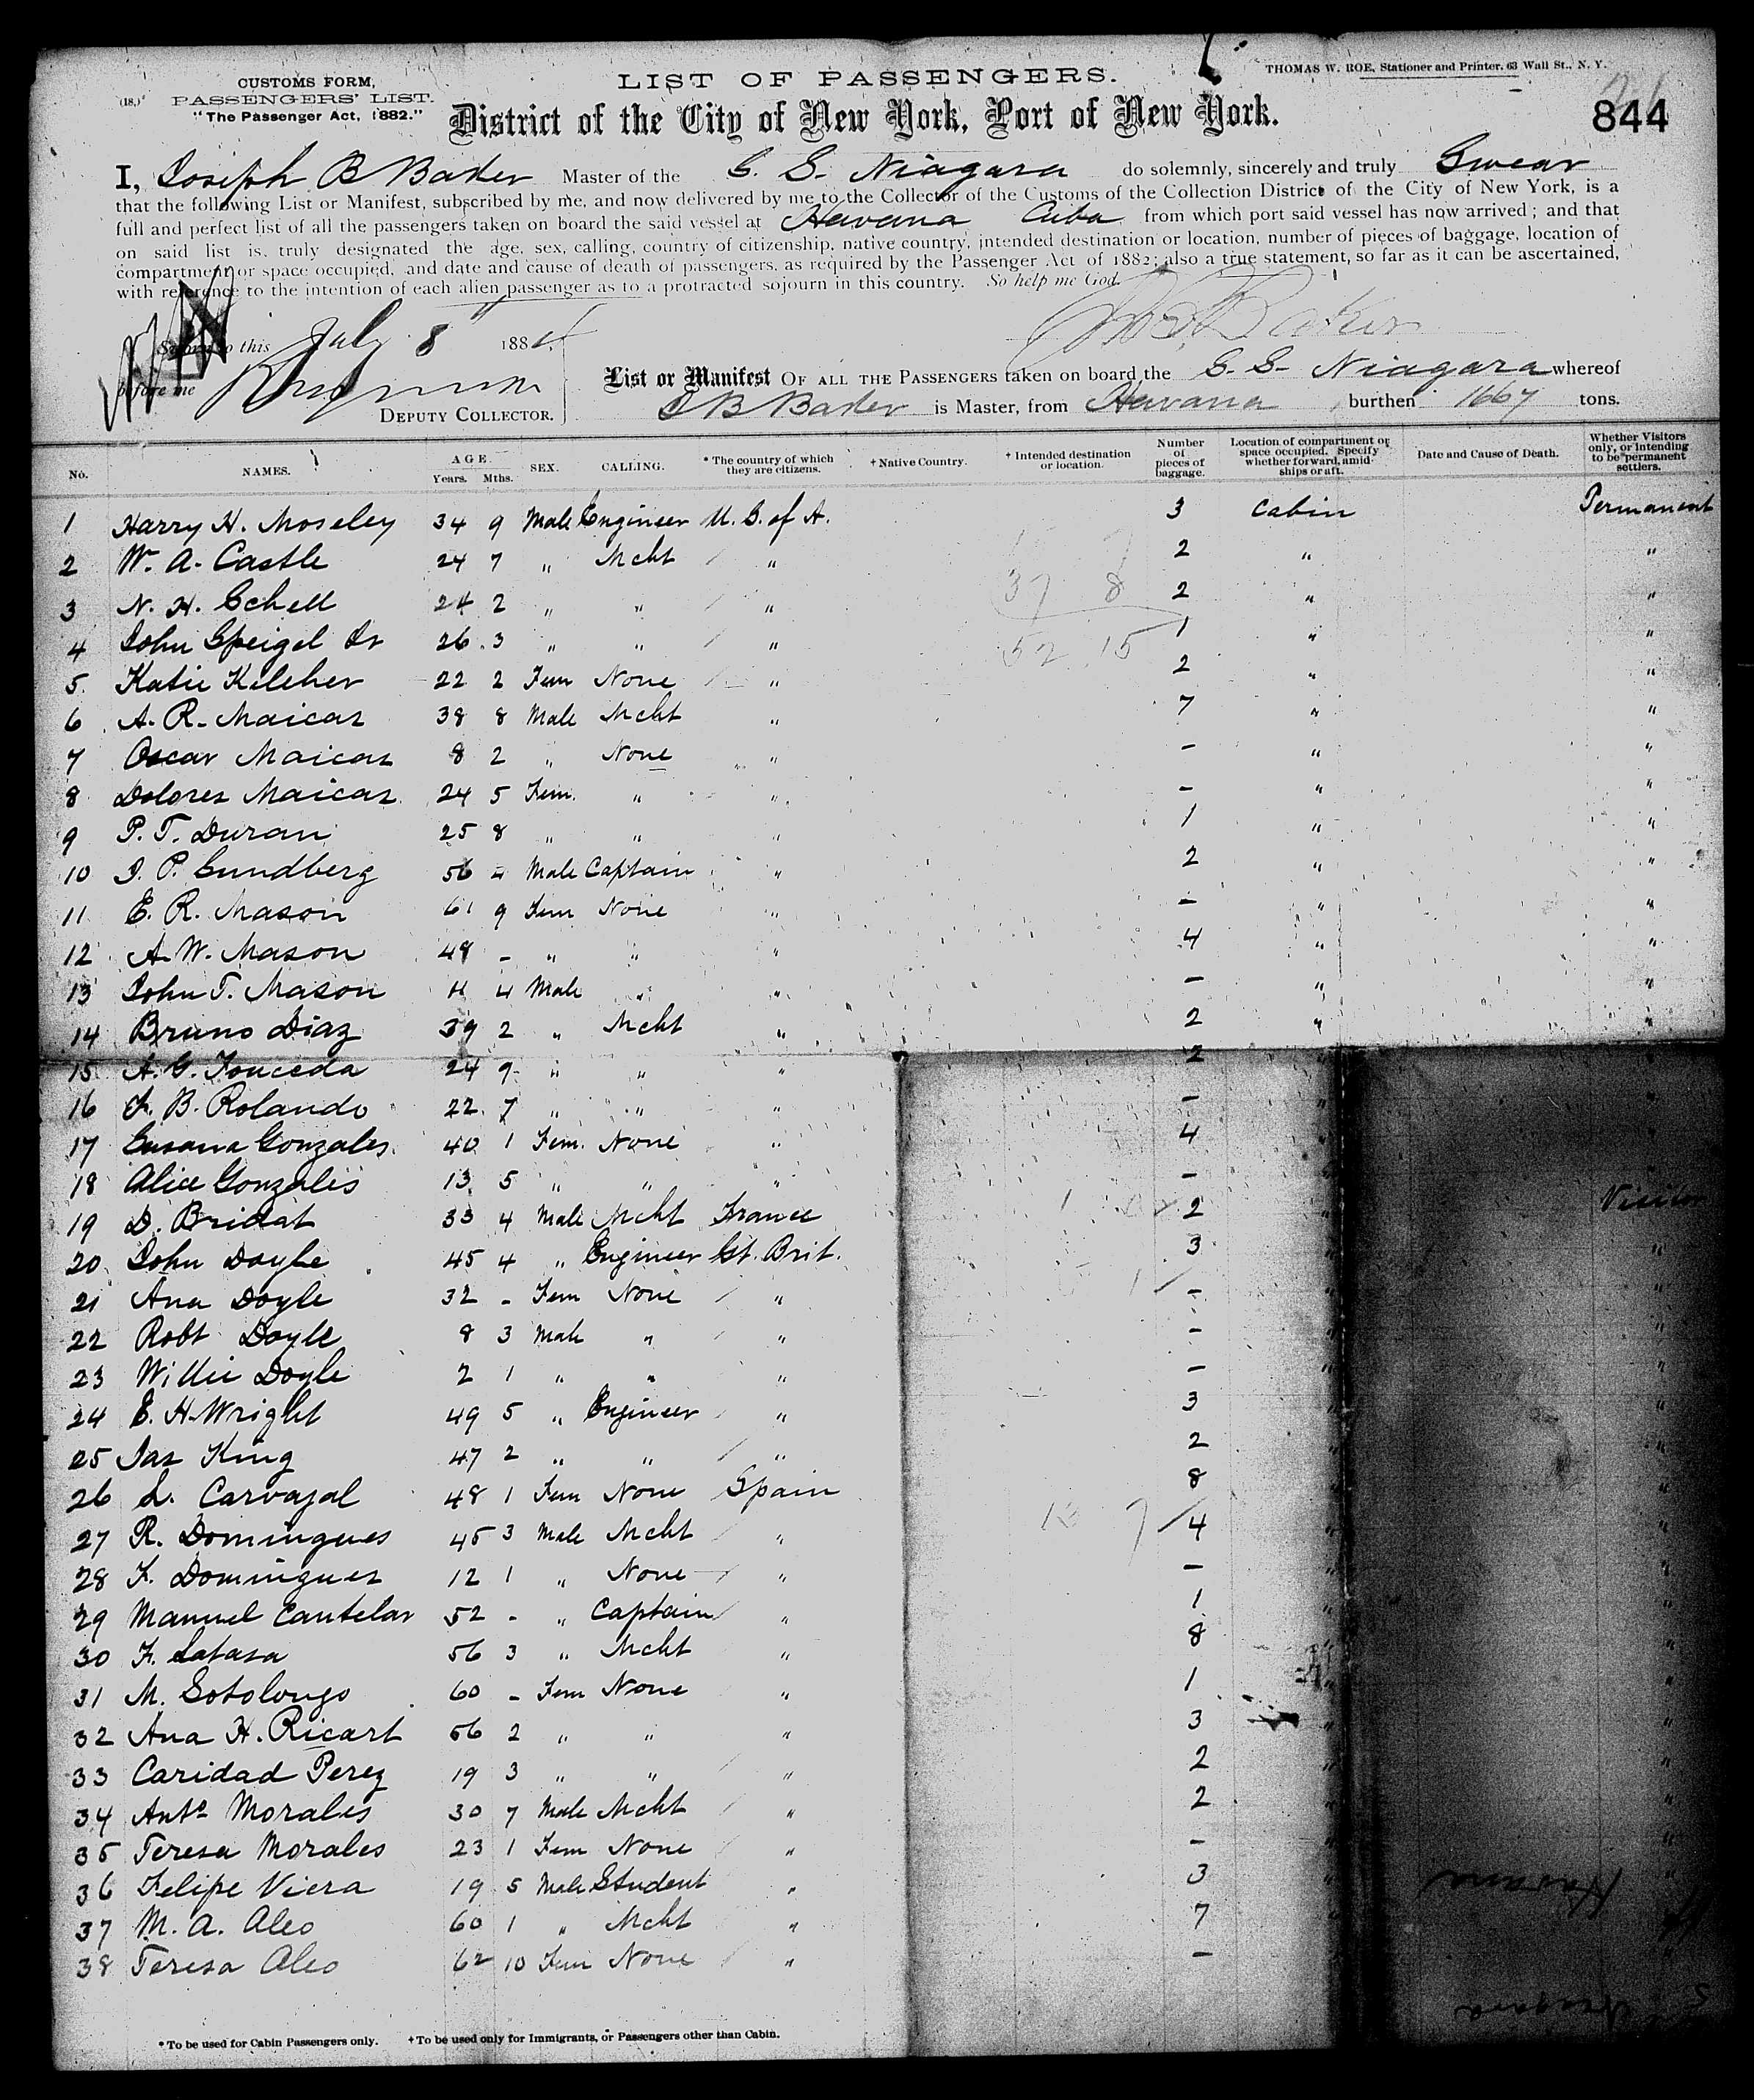 CUSTOMS FORM,
(18.) PASSENGERS' LIST.
"The Passenger Act, 1882."
LIST OF PASSENGERS.
THOMAS W. ROE, Stationer and Printer, 63 Wall St., N. Y.
District of the City of New York, Port of New York.
844
I, Joseph B Baker Master of the S. S. Niagara do solemnly, sincerely and truly Swear
that the following List or Manifest, subscribed by me, and now delivered by me to the Collector of the Customs of the Collection District of the City of New York, is a
full and perfect list of all the passengers taken on board the said vessel at Havana Cuba from which port said vessel has now arrived; and that
on said list is truly designated the age, sex, calling, country of citizenship, native country, intended destination or location, number of pieces of baggage, location of
compartment or space occupied, and date and cause of death of passengers, as required by the Passenger Act of 1882; also a true statement, so far as it can be ascertained,
with reference to the intention of each alien passenger as to a protracted sojourn in this country. So help me God.
Sworn to this July 8 1884
before me
DEPUTY COLLECTOR.
Baker
List or Manifest OF ALL THE PASSENGERS taken on board the S. S. Niagara whereof
J B Baker is Master, from Havana burthen 1667 tons.
No. NAMES. AGE Years. Mths. SEX. CALLING. * The country of which they are citizens. † Native Country. † Intended destination or location. Number of pieces of baggage. Location of compartment or space occupied. Specify whether forward, amidships or aft. Date and Cause of Death. Whether Visitors only, or intending to be permanent settlers.
1 Harry H. Moseley 34 9 Male Engineer U. S. of A. 3 Cabin Permanent
2 Wm. A. Castle 24 7 " Mcht " 2 " "
3 N. H. Schell 24 2 " " " 2 " "
4 John Speigel Jr 26 3 " " " 1 " "
5 Katie Kileher 22 2 Fem None " 2 " "
6 A. R. Maicas 38 8 Male Mcht " 7 " "
7 Oscar Maicas 8 2 " None " - " "
8 Dolores Maicas 24 5 Fem. " " - " "
9 P. T. Duran 25 8 " " " 1 " "
10 J. P. Sundberg 56 - Male Captain " 2 " "
11 E. R. Mason 61 9 Fem None " - " "
12 A. W. Mason 48 - " " " 4 " "
13 John T. Mason 11 4 Male " " - " "
14 Bruno Diaz 39 2 " Mcht " 2 " "
15 A. G. Fouceda 24 9 " " " 2 " "
16 F. B. Rolando 22 7 " " " - " "
17 Susana Gonzales 40 1 Fem. None " 4 " "
18 Alice Gonzales 13 5 " " " - "
19 D. Bridat 33 4 Male Mcht France 2 " Visitor
20 John Doyle 45 4 " Engineer Gt. Brit. 3 " "
21 Ana Doyle 32 - Fem None " - " "
22 Robt Doyle 8 3 Male " " - " "
23 Willie Doyle 2 1 " " " - " "
24 E. H. Wright 49 5 " Engineer " 3 " "
25 Jas King 47 2 " " " 2 " "
26 L. Carvajal 48 1 Fem None Spain 8 " "
27 R. Domingues 45 3 Male Mcht " 4 " "
28 F. Domingues 12 1 " None " - " "
29 Manuel Cantelar 52 - " Captain " 1 " "
30 F. Latasa 56 3 " Mcht " 8 " "
31 M. Sotolongo 60 - Fem None " 1 " "
32 Ana H. Ricart 56 2 " " " 3 " "
33 Caridad Perez 19 3 " " " 2 " "
34 Anto Morales 30 7 Male Mcht " 2 " "
35 Teresa Morales 23 1 Fem None " - " "
36 Felipe Viera 19 5 Male Student " 3 " "
37 M. A. Aleo 60 1 " Mcht " 7 " "
38 Teresa Aleo 62 10 Fem None " -
37 8
52 15
Havana
Niagara
* To be used for Cabin Passengers only. † To be used only for Immigrants, or Passengers other than Cabin.